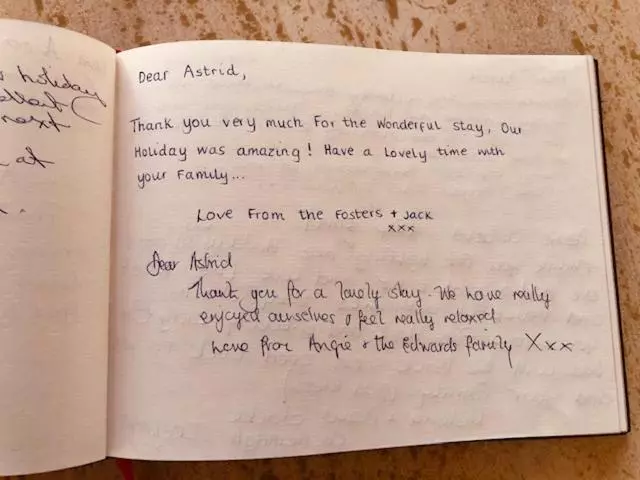 holiday
next
at
Dear Astrid,
Thank you very much For the wonderful stay, Our
Holiday was amazing! Have a Lovely time with
your Family...
Love From the Fosters + Jack
xxx
Dear Astrid
Thank you for a lovely stay. We have really
enjoyed ourselves & feel really relaxed
Love from Angie & the Edwards family Xxx